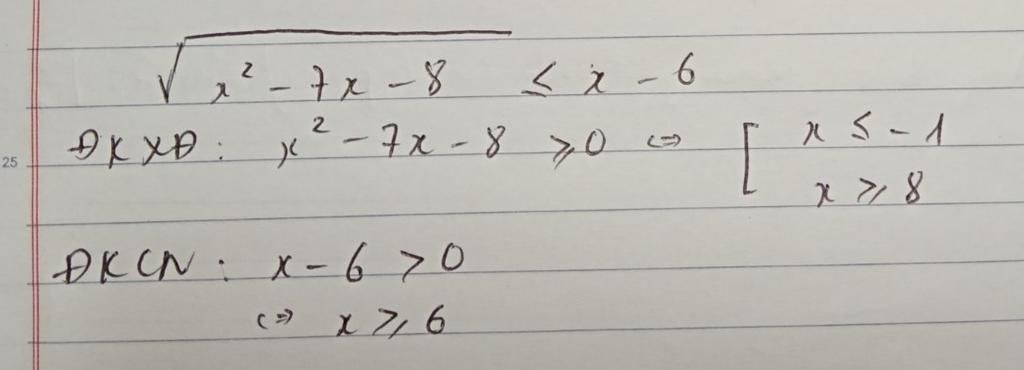 √(x² - 7x - 8) ≤ x - 6
ĐKXĐ: x² - 7x - 8 ⩾ 0 ⇔ [ x ≤ -1
x ⩾ 8
25
ĐKCN: x - 6 > 0
⇔ x ⩾ 6